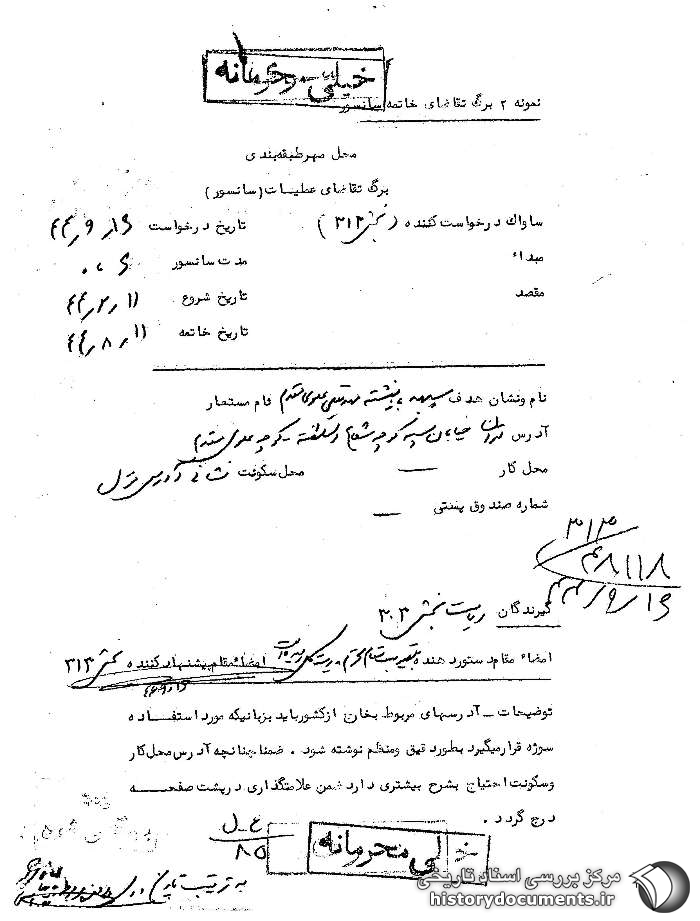 خیلی محرمانه
نمونه ۲ برگ تقاضای خاتمه سانسور
محل مهر طبقه‌بندی
برگ تقاضای عملیات (سانسور)
ساواک درخواست کننده (بخش ۳۱۲) تاریخ درخواست
مبداء مدت سانسور
مقصد تاریخ شروع
تاریخ خاتمه ۱۱ر۸ر۴۴
نام و نشان هدف سپهبد بازنشسته مهدیقلی علوی مقدم نام مستعار
آدرس تهران خیابان سپه کوچه علوی مقدم
محل کار — محل سکونت نشانی آدرس منزل
شماره صندوق پستی —
۳۱۲
گیرندگان ریاست بخش ۳۰۳
امضاء مقام دستور دهنده امضاء مقام پیشنهاد کننده بخش ۳۱۲
توضیحات ــ آدرسهای مربوط بخارج از کشور باید بزبانیکه مورد استفـاده
سوژه قرار میگیرد بطور دقیق و منظم نوشته شود . ضمنا چنانچه آدرس محل کار
و سکونت احتیاج بشرح بیشتری دارد ضمن علامتگذاری در پشت صفحـــه
درج گردد .
ع ـ ل
۸۵
خیلی محرمانه
مرکز بررسی اسناد تاریخی
historydocuments.ir